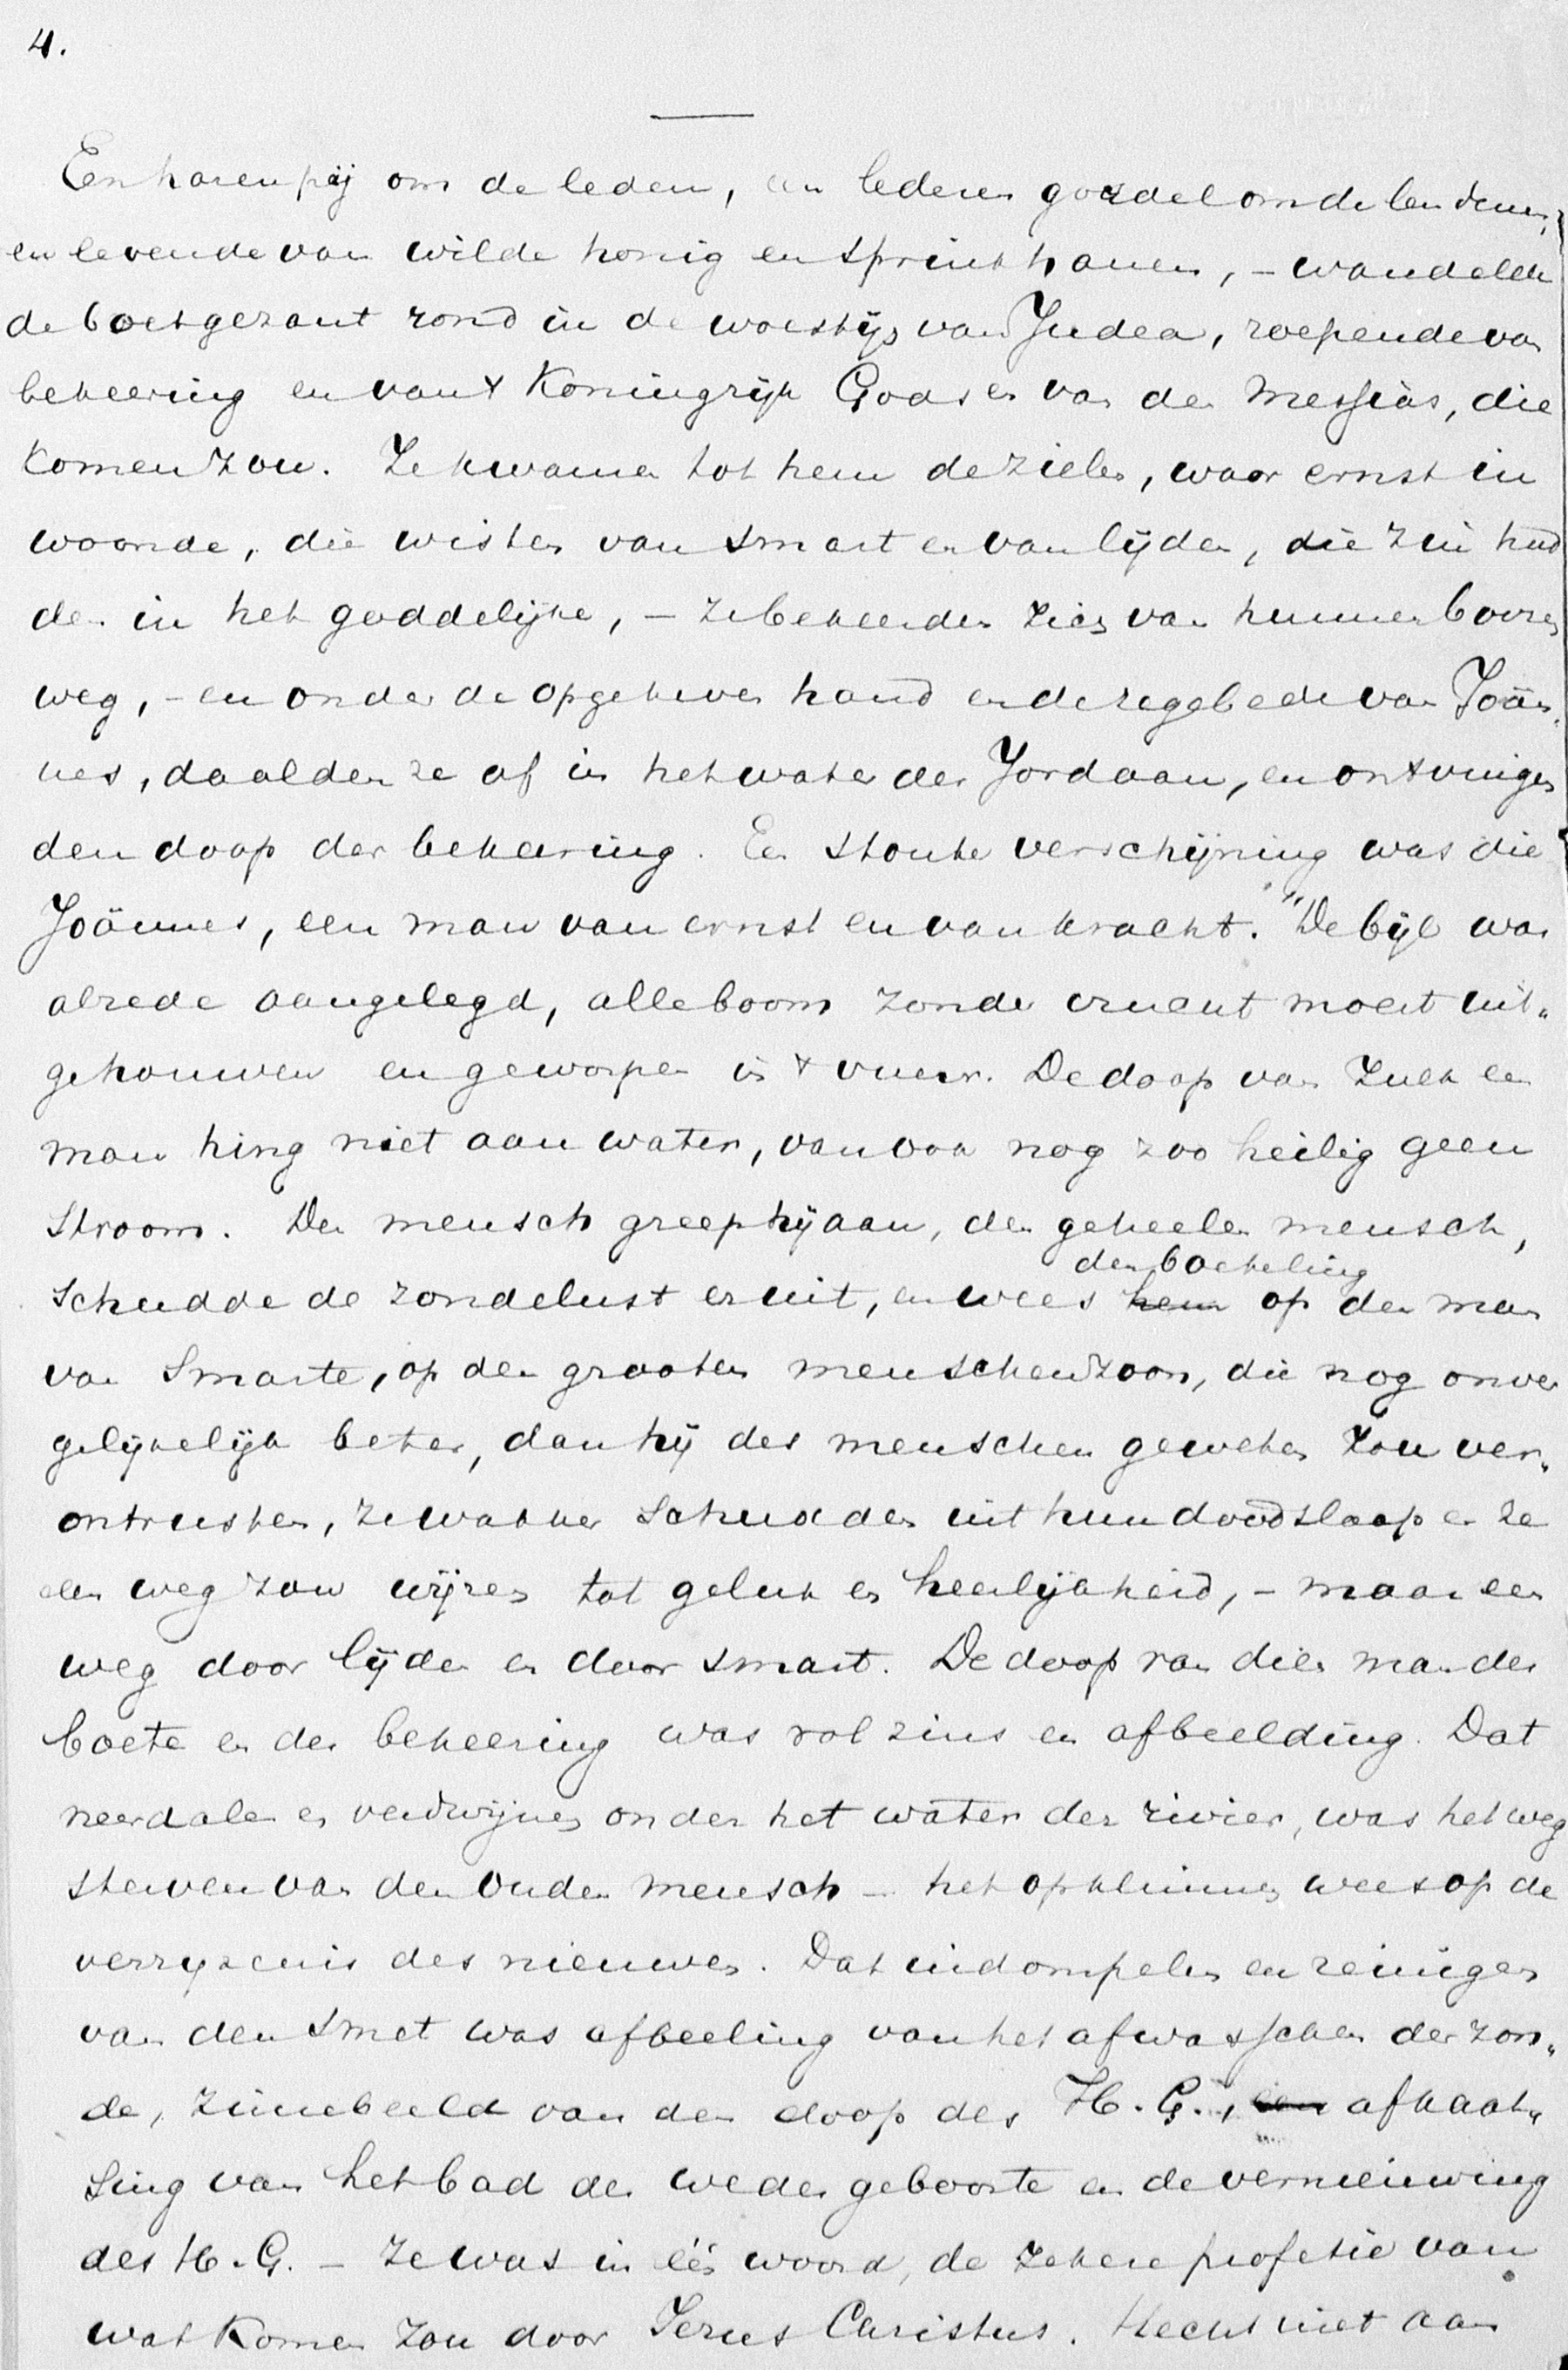 4.
Een haren pij om de leden, een lederen gordel om de lendenen,
en levende van wilde honig en sprinkhanen, – wandelde
de boetgezant rond in de woestijn van Judea, roepende van
bekeering en van 't Koningrijk Gods en van den Messias, die
komen zou. Ze kwamen tot hem de zielen, waar ernst in
woonde, die wisten van smart en van lijden, die zin had
den in het goddelijke, – ze bekeerden zich van hunnen boozen
weg, – en onder de opgeheven hand en de zegebede van Joän,
nes, daalden ze af in het water der Jordaan, en ontvingen
den doop der bekeering. Een stoute verschijning was die
Joännes, een man van ernst en van kracht. "De bijl was
alrede aangelegd, alle boom zonder vrucht moest uit„
gehouwen en geworpen in 't vuur. De doop van zulk een
man hing niet aan water, van ook nog zoo heilig geen
stroom. Den mensch greep hij aan, den geheelen mensch,
den boeteling
schudde de zondelust er uit, en wees hem op den man
van Smarte, op den grooten menschenzoon, die nog onver
gelijkelijk beter, dan hij des menschen geweten zou ver„
ontrusten, ze wakker schudden uit hun doodslaap en ze
den weg zou wijzen tot geluk en heerlijkheid, – maar een
weg door lijden en door smart. De doop van dien man der
boete en der bekeering was vol zins en afbeelding. Dat
neerdalen en verdwijnen onder het water der rivier, was het weg
sterven van den ouden mensch – het opklimmen wees op de
verryzenis des nieuwen. Dat indompelen en reinigen
van den smet was afbeeling van het afwasschen der zon„
de, zinnebeeld van den doop des H. G., een afkaat„
sing van het bad der wedergeboorte en de vernieuwing
des H. G. – ze was in één woord, de zekere profetie van
wat komen zou door Jezus Christus. Hecht niet aan